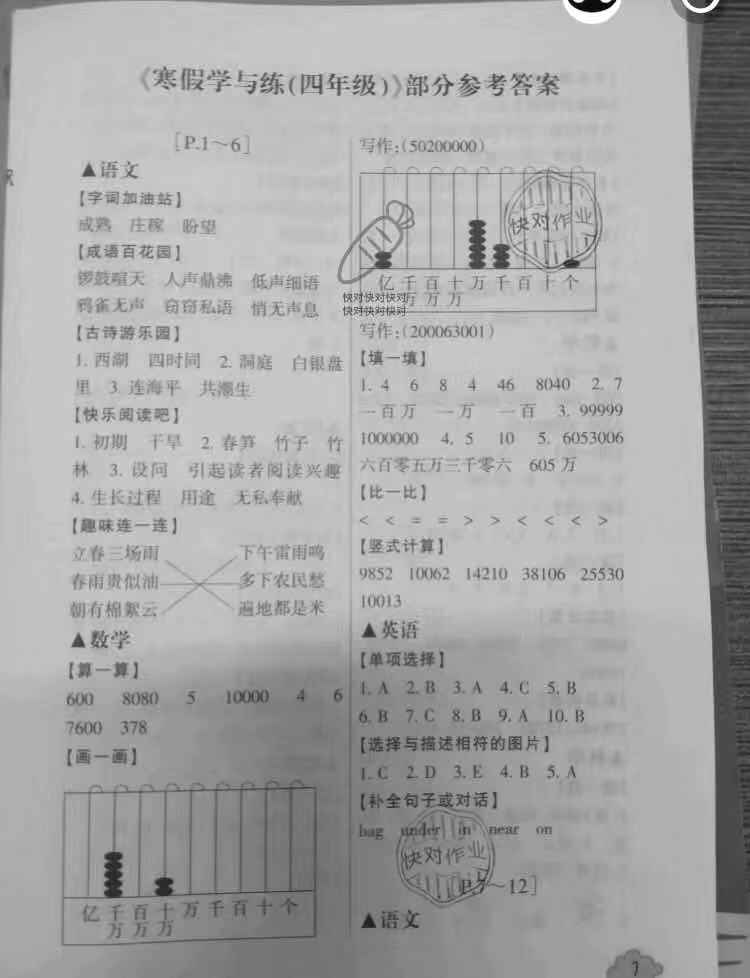 《寒假学与练(四年级)》部分参考答案
[P.1～6]
▲语文
【字词加油站】
成熟 庄稼 盼望
【成语百花园】
锣鼓喧天 人声鼎沸 低声细语
鸦雀无声 窃窃私语 悄无声息
【古诗游乐园】
1. 西湖 四时同 2. 洞庭 白银盘
里 3. 连海平 共潮生
【快乐阅读吧】
1. 初期 干旱 2. 春笋 竹子 竹
林 3. 设问 引起读者阅读兴趣
4. 生长过程 用途 无私奉献
【趣味连一连】
立春三场雨 下午雷雨鸣
春雨贵似油 多下农民愁
朝有棉絮云 遍地都是米
▲数学
【算一算】
600 8080 5 10000 4 6
7600 378
【画一画】
亿 千 百 十 万 千 百 十 个
万 万 万
写作:(50200000)
快对作业
亿 千 百 十 万 千 百 十 个
万 万 万
快对快对快对
快对快对快对
写作:(200063001)
【填一填】
1. 4 6 8 4 46 8040 2. 7
一百万 一万 一百 3. 99999
1000000 4. 5 10 5. 6053006
六百零五万三千零六 605 万
【比一比】
< < = = > > < < < >
【竖式计算】
9852 10062 14210 38106 25530
10013
▲英语
【单项选择】
1. A 2. B 3. A 4. C 5. B
6. B 7. C 8. B 9. A 10. B
【选择与描述相符的图片】
1. C 2. D 3. E 4. B 5. A
【补全句子或对话】
bag under in near on
快对作业
[P.7～12]
▲语文
1